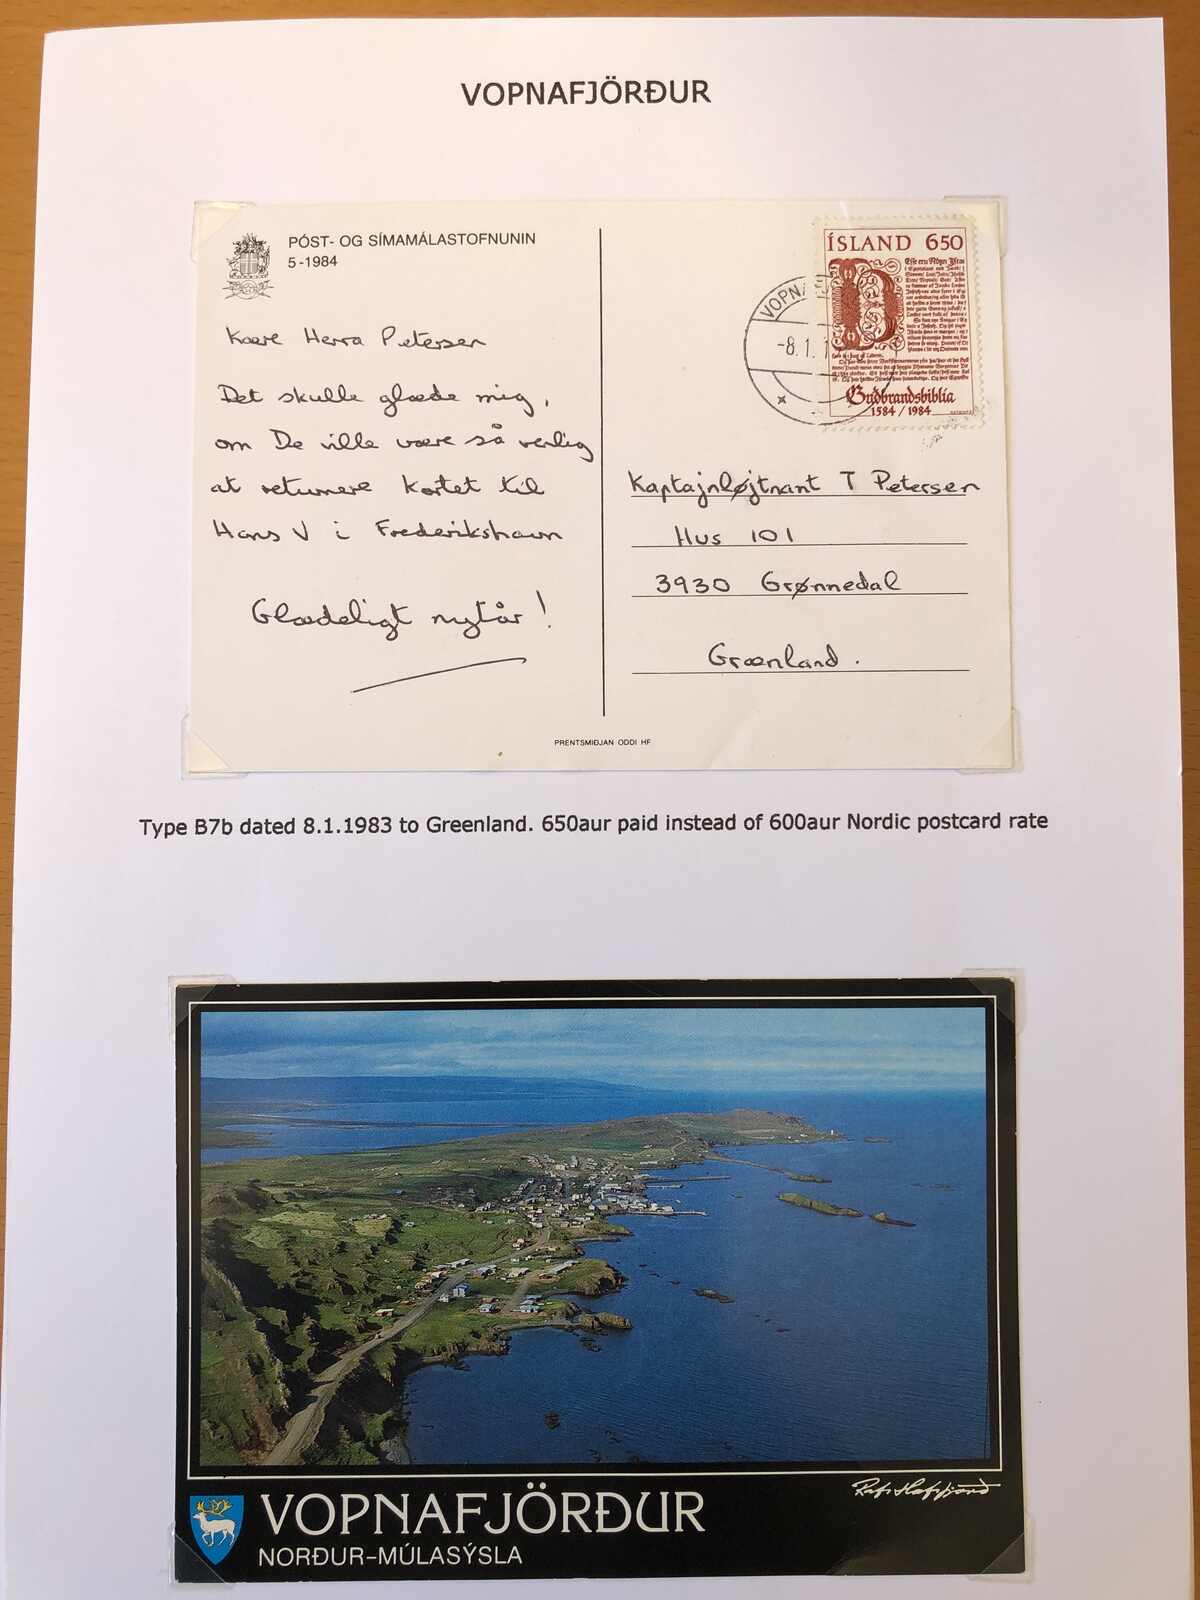 VOPNAFJÖRÐUR
PÓST- OG SÍMAMÁLASTOFNUNIN
5-1984
Kære Herra Petersen
Det skulle glæde mig,
om De ville være så venlig
at returnere kortet til
Hans V i Frederikshavn
Glædeligt nytår!
ÍSLAND 650
Gudbrandsbiblia
1584 / 1984
VOPN
-8.1.1
Kaptajnløjtnant T Petersen
Hus 101
3930 Grønnedal
Grænland.
PRENTSMIÐJAN ODDI HF
Type B7b dated 8.1.1983 to Greenland. 650aur paid instead of 600aur Nordic postcard rate
VOPNAFJÖRÐUR
NORÐUR-MÚLASÝSLA